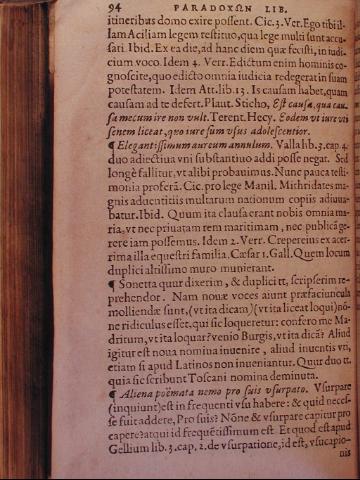 94 PARADOXΩN LIB.
itineribus domo exire possent. Cic. 3. Ver. Ego tibi il-
lam Aciliam legem restituo, qua lege multi sunt accu-
sati. Ibid. Ex ea die, ad hanc diem quæ fecisti, in iudi-
cium voco. Idem 4. Verr. Edictum enim hominis co-
gnoscite, quo edicto omnia iudicia redegerat in suam
potestatem. Idem Att. lib. 13. Is causam habet, quam
causam ad te defert. Plaut. Sticho, Est causa, qua cau-
sa mecum ire non vult. Terent. Hecy. Eodem vt iure vti
senem liceat, quo iure sum vsus adolescentior.
¶ Elegantissimum aureum annulum. Valla lib. 3. cap. 4.
duo adiectiua vni substantiuo addi posse negat. Sed
longè fallitur, vt alibi probauimus. Nunc pauca testi-
monia proferã. Cic. pro lege Manil. Mithridates ma-
gnis aduentitiis multarum nationum copiis adiuua-
batur. Ibid. Quum ita clausa erant nobis omnia ma-
ria, vt nec priuatam rem maritimam, nec publicã ge-
rere iam possemus. Idem 2. Verr. Crepereius ex acer-
rima illa equestri familia. Cæsar 1. Gall. Quem locum
duplici altissimo muro munierant.
¶ Sonetta quur dixerim, & duplici tt, scripserim re-
prehendor. Nam nouæ voces aiunt præfaciuncula
molliendæ sunt, (vt ita dicam) (vt ita liceat loqui) nó-
ne ridiculus esset, qui sic loqueretur: confero me Ma-
dritum, vt ita loquar? venio Burgis, vt ita dicã? Aliud
igitur est noua nomina inuenire, aliud inuentis vti,
etiam si apud Latinos non inueniantur. Quur duo tt.
quia sic scribunt Toscani nomina deminuta.
¶ Aliena poëmata nemo pro suis vsurpato. Vsurpare
(inquiunt) est in frequenti vsu habere: & quid neces-
se fuit addere, Pro suis? Nõne & vsurpare capitur pro
capere? atqui id frequẽtissimum est. Et quod est apud
Gellium lib. 3. cap. 2. de vsurpatione, id est, vsucapio-
nis